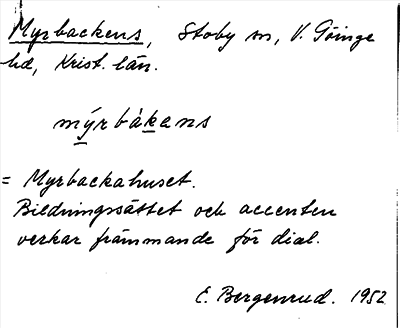 Myrbackens, Stoby sn, V. Göinge
hd, Krist. län.
mýrbàkens
= Myrbackahuset.
Bildningssättet och accenten
verkar främmande för dial.
E. Bergenrud. 1952